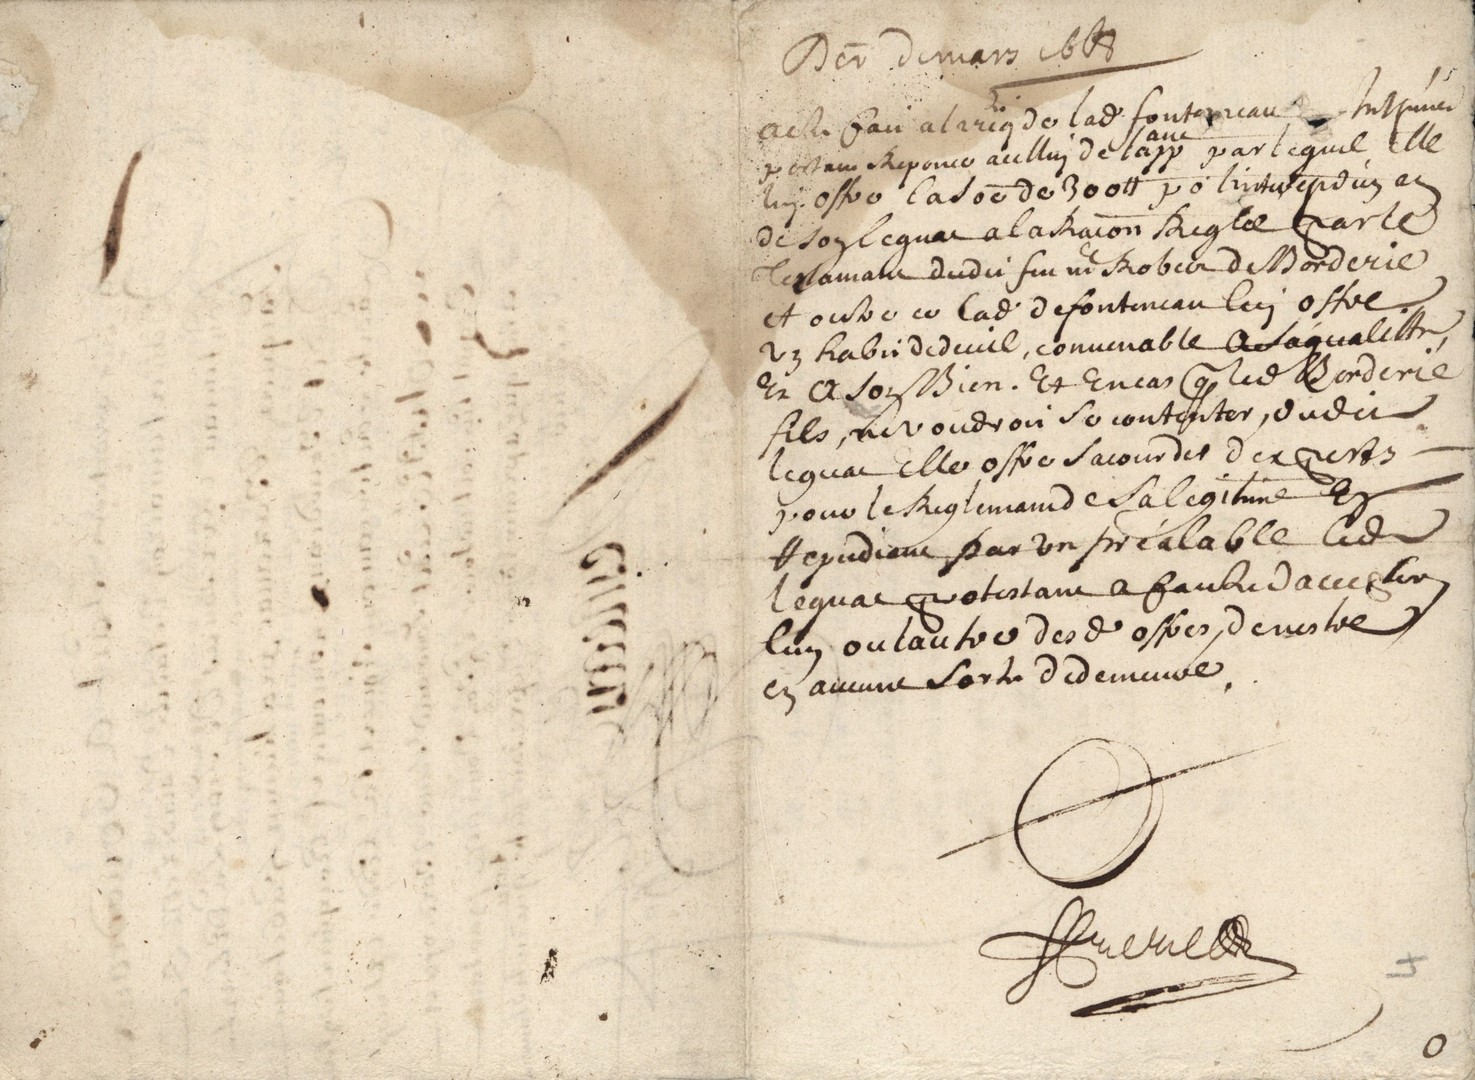 Der de mars 1668
acte fait a la req de lad fonteneau
portant Reponce a celluy de lapp avue par lequel Elle
luy offre la soe de 300tt po
de son legat a la Raion Reglee par le
Testamant dudit feu mr Robert de Borderie
et outre ce lad de fonteneau luy offre
un habit de deuil, convenable a sa qualitte,
Et a son Bien. Et En cas q led Borderie
fils, ne voudroit se contenter, dudit
leguat Elle offre sacourder dexperts
pour le Reglemant de sa legitime En
Repudiant par un preálable led
leguat protestant a faute daccepter
lun ou lautre desd offres, de nestre
en aucune sorte de demeure.
4
0